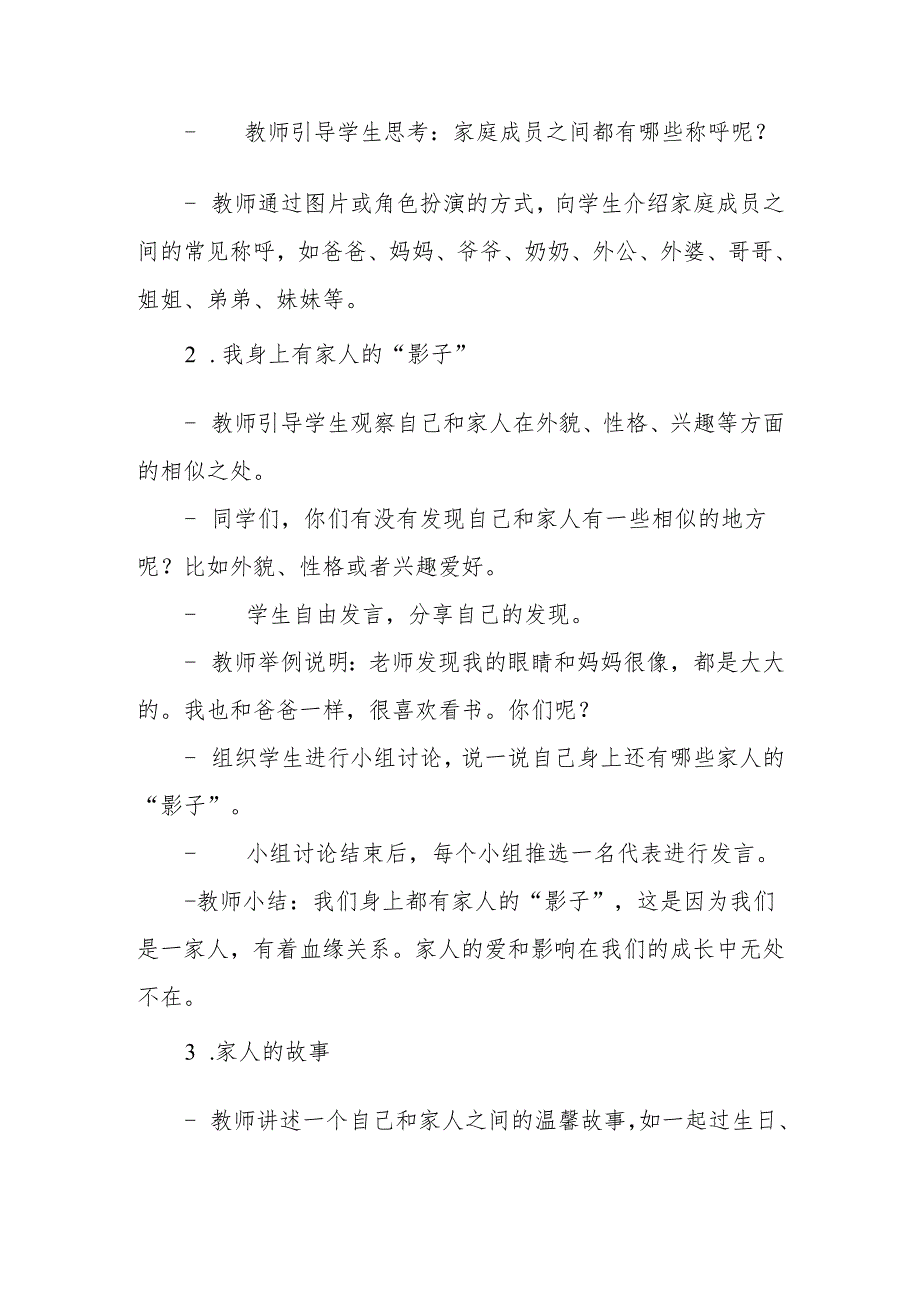 - 教师引导学生思考：家庭成员之间都有哪些称呼呢？
- 教师通过图片或角色扮演的方式，向学生介绍家庭成员之
间的常见称呼，如爸爸、妈妈、爷爷、奶奶、外公、外婆、哥哥、
姐姐、弟弟、妹妹等。
2 .我身上有家人的“影子”
- 教师引导学生观察自己和家人在外貌、性格、兴趣等方面
的相似之处。
- 同学们，你们有没有发现自己和家人有一些相似的地方
呢？比如外貌、性格或者兴趣爱好。
- 学生自由发言，分享自己的发现。
- 教师举例说明：老师发现我的眼睛和妈妈很像，都是大大
的。我也和爸爸一样，很喜欢看书。你们呢？
- 组织学生进行小组讨论，说一说自己身上还有哪些家人的
“影子”。
- 小组讨论结束后，每个小组推选一名代表进行发言。
-教师小结：我们身上都有家人的“影子”，这是因为我们
是一家人，有着血缘关系。家人的爱和影响在我们的成长中无处
不在。
3 .家人的故事
- 教师讲述一个自己和家人之间的温馨故事，如一起过生日、